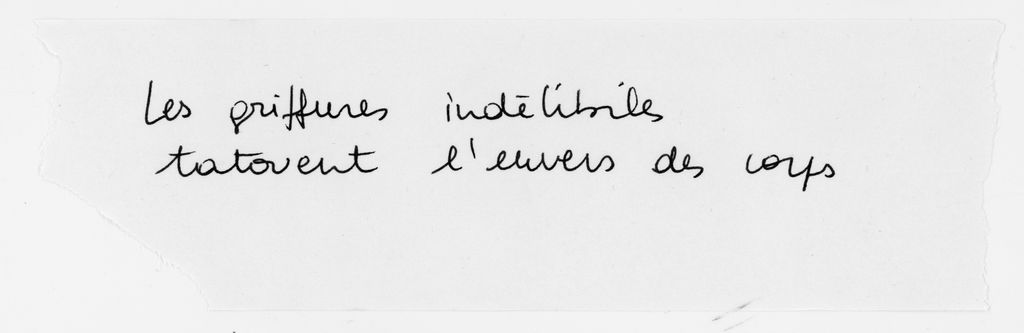 Les griffures indélibiles
tatouent l'envers des corps